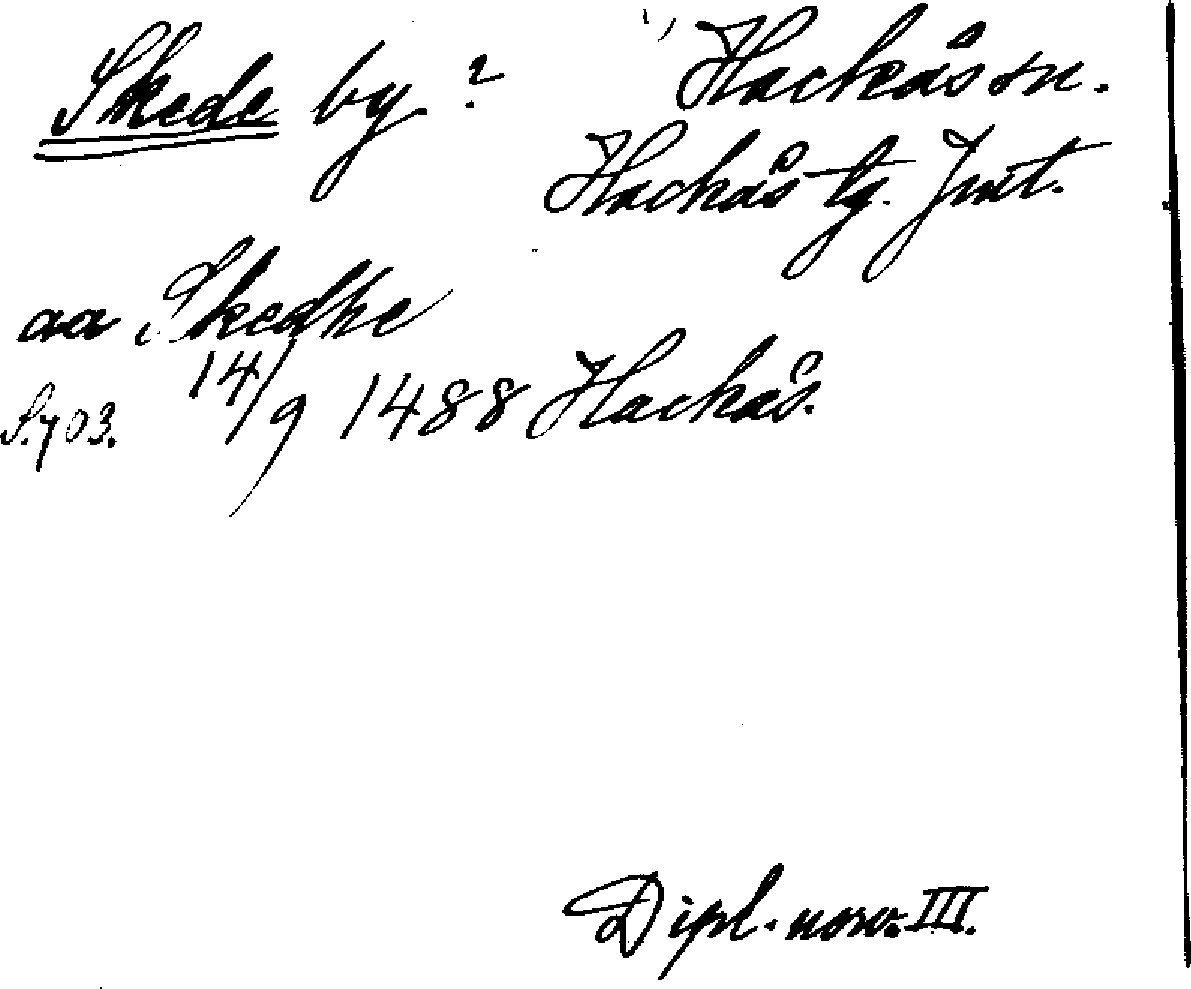 Skede by? Hackås sn.
Hackås tg. Jmt.
aa Skedhe
S.703. 14/9 1488 Hackås.
Dipl. norv. III.